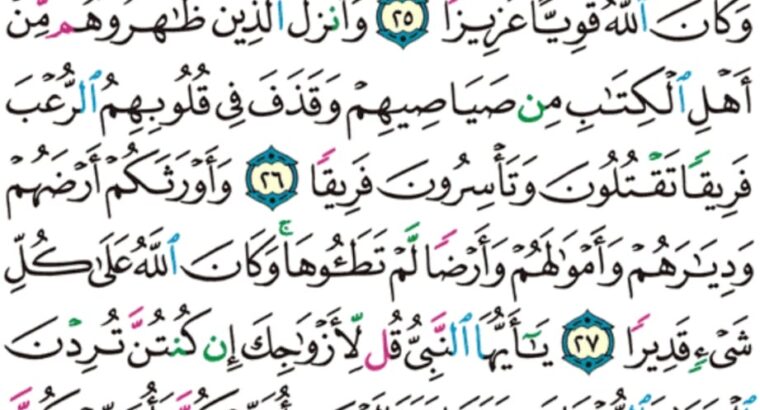 وَكَانَ ٱللَّهُ قَوِيًّا عَزِيزًا ٢٥ وَأَنزَلَ ٱلَّذِينَ ظَٰهَرُوهُم مِّنْ
أَهْلِ ٱلْكِتَٰبِ مِن صَيَاصِيهِمْ وَقَذَفَ فِى قُلُوبِهِمُ ٱلرُّعْبَ
فَرِيقًا تَقْتُلُونَ وَتَأْسِرُونَ فَرِيقًا ٢٦ وَأَوْرَثَكُمْ أَرْضَهُمْ
وَدِيَٰرَهُمْ وَأَمْوَٰلَهُمْ وَأَرْضًا لَّمْ تَطَـُٔوهَا ۚ وَكَانَ ٱللَّهُ عَلَىٰ كُلِّ
شَىْءٍ قَدِيرًا ٢٧ يَٰٓأَيُّهَا ٱلنَّبِىُّ قُل لِّأَزْوَٰجِكَ إِن كُنتُنَّ تُرِدْنَ